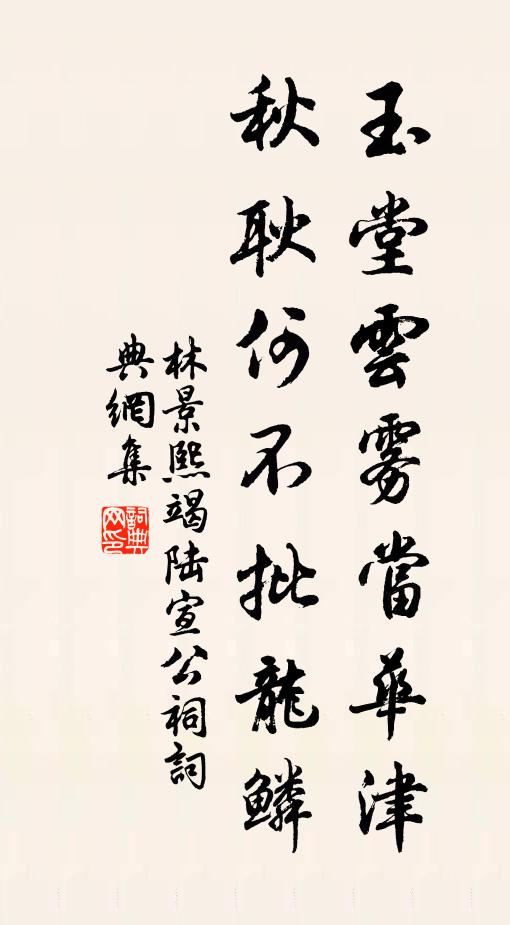 玉堂雲霧當華津
秋耿何不批龍鱗
林景熙竭陆宣公祠詞
典網集
詞典
网印